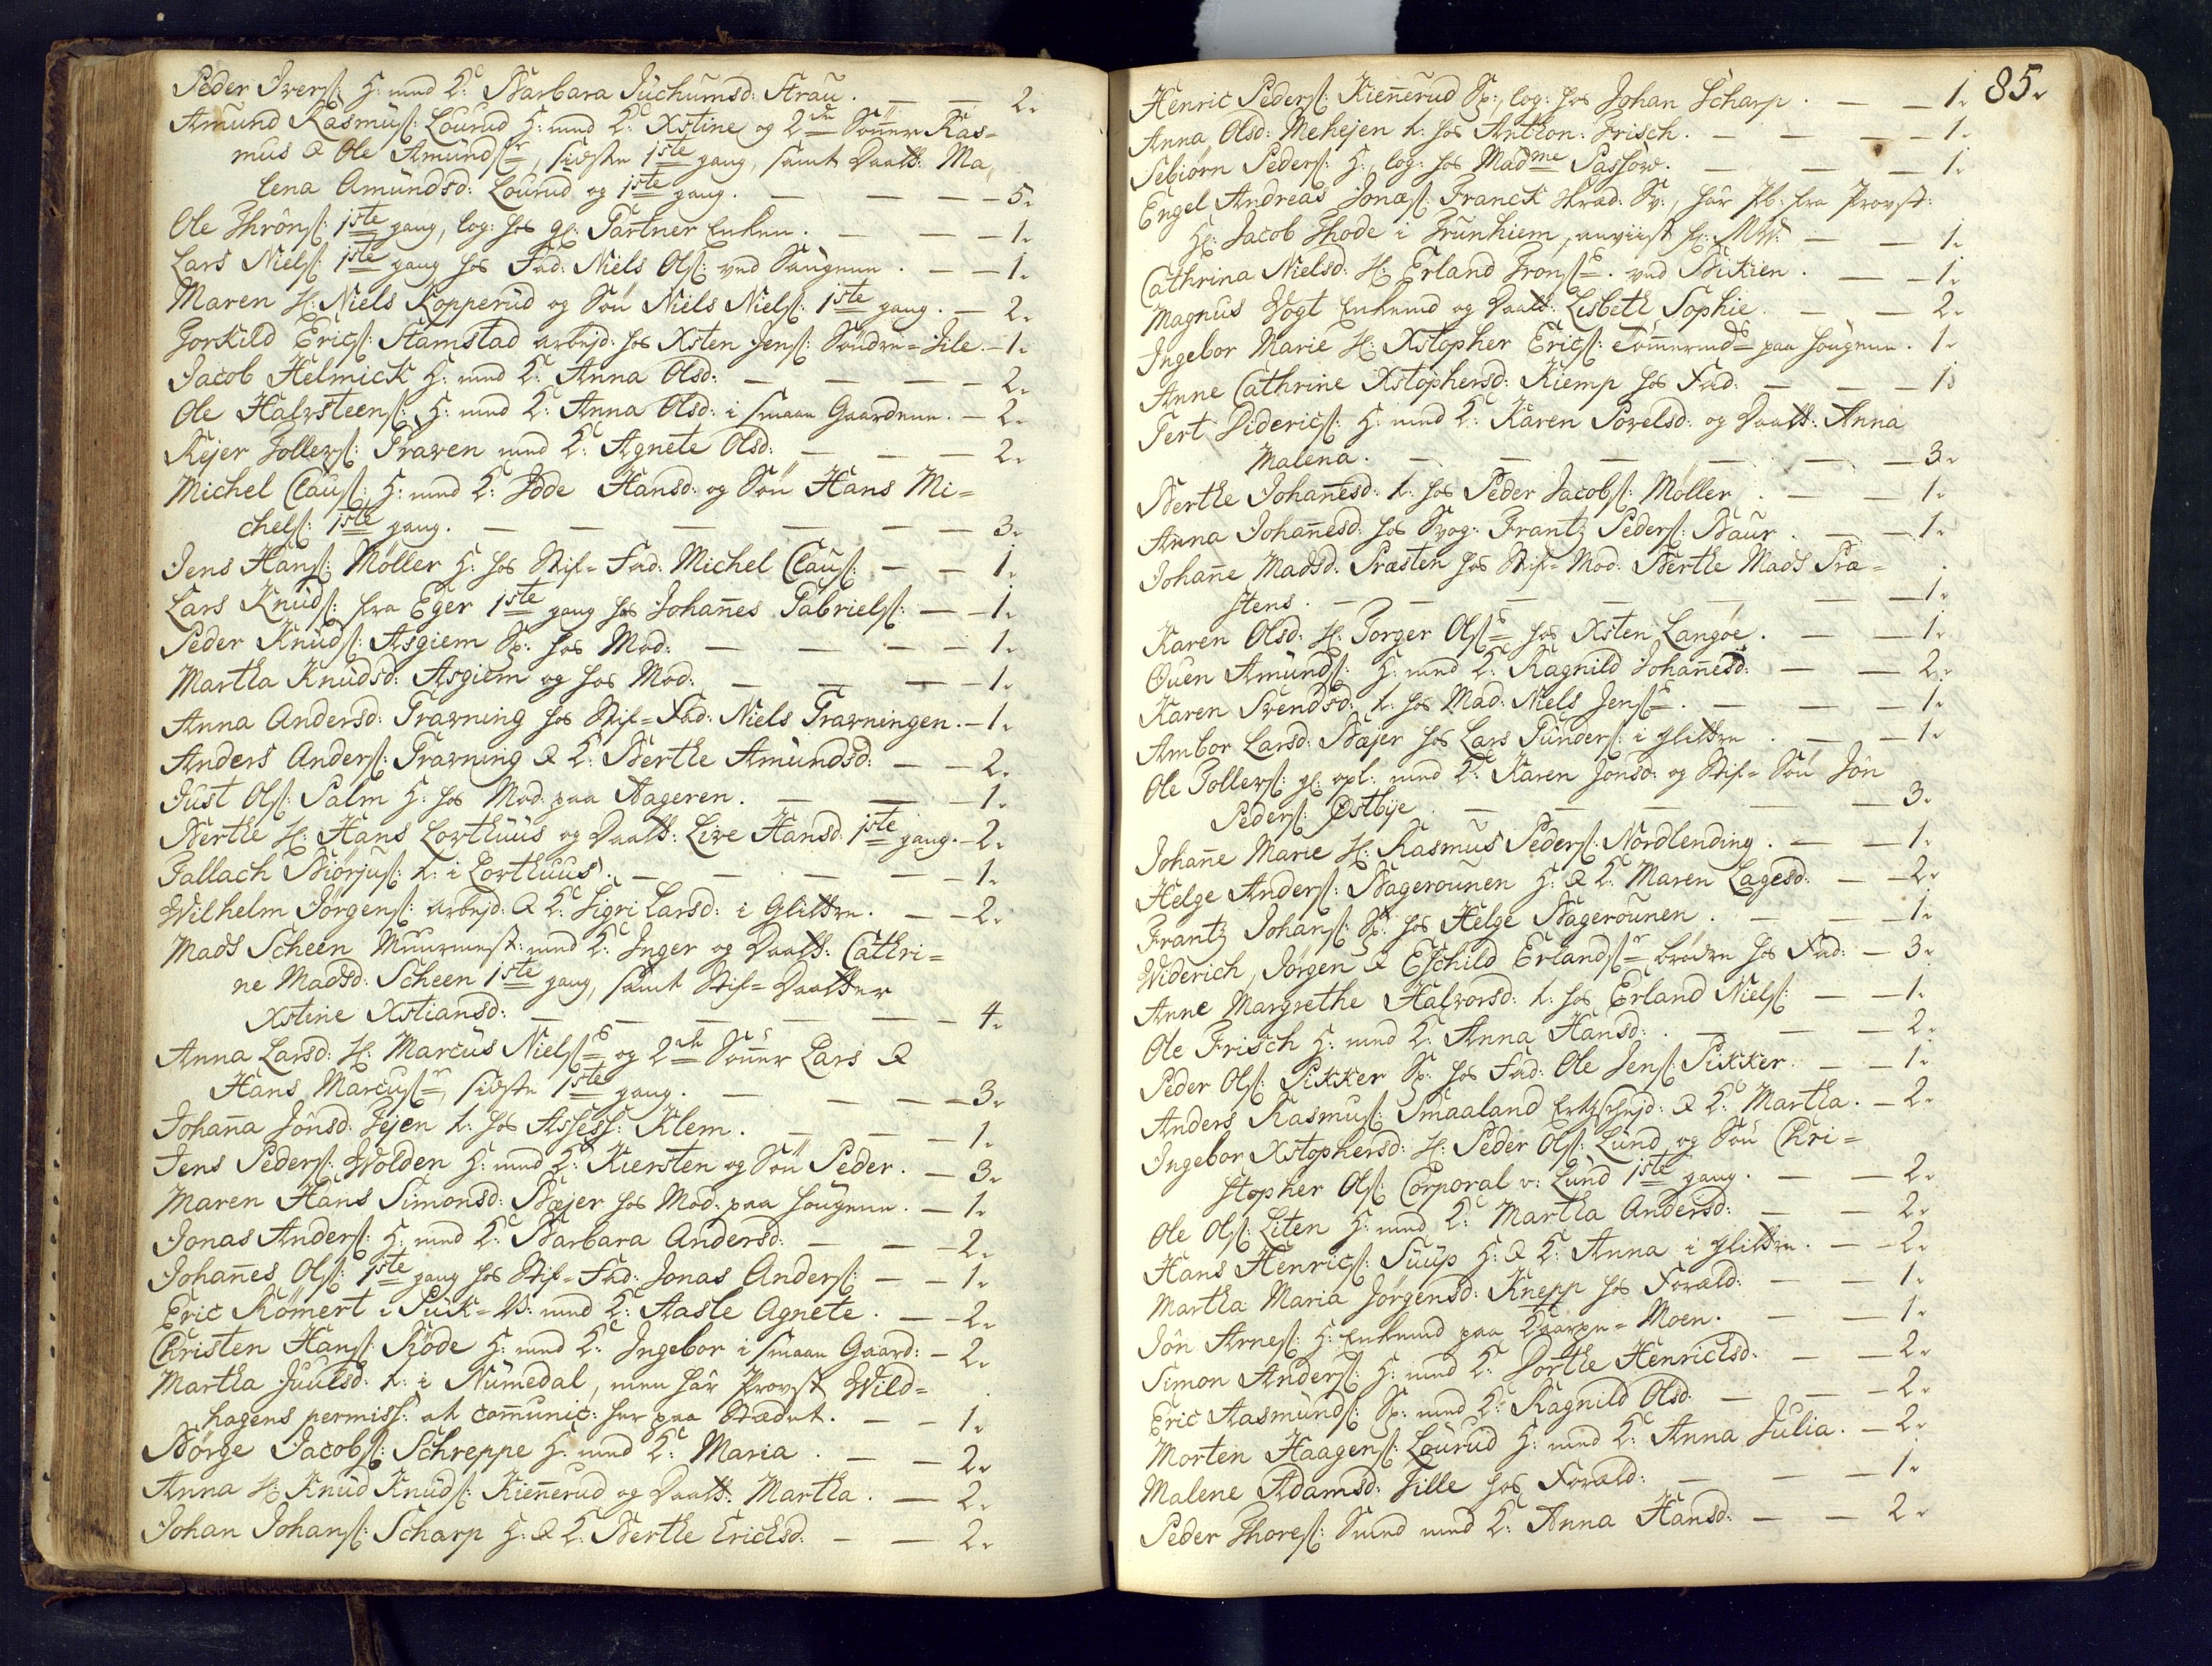 Peder Iverſ: H: med K: Barbara Juchumsd: Strau. — — 2.
Amund Rasmuſ: Lourud H: med K: Xstine og 2de Sönner Ras=
mus & Ole Amundſr, sidste 1ste gang, samt Daatt: Ma,
lena Amundsd: Lourud og 1ste gang. — — — 5.
Ole Thrönſ: 1ste gang, log: hos gl: Partner Enken. — — 1.
Lars Nielſ: 1ste gang hos Fad: Niels Olſ: ved Saugene. — — 1.
Maren H: Niels Kopperud og Sön Niels Nielſ: 1ste gang. — 2.
Torkild Ericſ: Stamstad arbejd: hos Xsten Jenſ: Söndre=Jile. — 1.
Jacob Helmick H: med K: Anna Olsd: — — — 2.
Ole Halvsteenſ: H: med K: Anna Olsd: i smaae Gaardene. — 2.
Rejer Tollerſ: Graven med K: Agnete Olsd: — — — 2.
Michel Clauſ: H: med K: Edde Hansd: og Sön Hans Mi=
chelſ: 1ste gang. — — — — — 3.
Jens Hanſ: Møller H: hos Stif=Fad: Michel Clauſ: — — 1.
Lars Knudſ: fra Eger 1ste gang hos Johannes Gabrielſ: — — 1.
Peder Knudſ: Asgiem Sp: hos Mod: — — — 1.
Martha Knudsd: Asgiem og hos Mod: — — — 1.
Anna Andersd: Gravning hos Stif=Fad: Niels Gravningen. — 1.
Anders Anderſ: Gravning & K: Berthe Amundsd: — — 2.
Just Olſ: Palm H: hos Mod: paa Aageren. — — — 1.
Berthe H: Hans Lorthuus og Daatt: Live Hansd: 1ste gang. — 2.
Gallach Biörjuſ: t: i Lorthuus. — — — — 1.
Wilhelm Jörgenſ: arbejd: & K: Sigri Larsd: i Glittre. — — 2.
Mads Scheen Muurmest: med K: Inger og Daatt: Cathri=
ne Madsd: Scheen 1ste gang, samt Stif=Daatter
Xstine Xstiansd: — — — — — 4.
Anna Larsd: H: Marcus Nielſs og 2de Sönner Lars &
Hans Marcuſr, sidste 1ste gang. — — — 3.
Johanna Jönsd: Tejen t: hos Assess: Klem. — — — 1.
Jens Pederſ: Wolden H: med K: Kiersten og Sön Peder. — 3.
Maren Hans Simonsd: Bejer hos Mod: paa Haugene. — 1.
Jonas Anderſ: H: med K: Barbara Andersd: — — — 2.
Johannes Olſ: 1ste gang hos Stif=Fad: Jonas Anderſ: — — 1.
Eric Römert i Puk=V: med K: Aasle Agnete. — — 2.
Christen Hanſ: Röde H: med K: Ingebor i smaae Gaard: — 2.
Martha Juulsd: t: i Numedal, men har Provst Wild=
hagens permiss: at communic: her paa Stædet. — — 1.
Börge Jacobſ: Schreppe H: med K: Maria. — — 2.
Anna H: Knud Knudſ: Kiennerud og Daatt: Martha. — 2.
Johan Johanſ: Scharp H: & K: Berthe Ericksd: — — 2.
85.
Henric Pederſ: Kiennerud Sp:, log: hos Johan Scharp. — — 1.
Anna Olsd: Mehejen t: hos Anthon: Frisch. — — — 1.
Sebiörn Pederſ: H:, log: hos Madme Passow. — — — 1.
Engel Andreas Jonæſ: Franck Skræd: Sv:, har Pb: fra Provst:
Hl: Jacob Thode i Trunhiem, anviist hl: — — 1.
Cathrina Nielsd: H: Erland Tronſs ved Birkien. — — 1.
Magnus Vogt Enkemd og Daatt: Lisbeth Sophie. — — 2.
Ingebor Marie H: Xstopher Ericſ: Tömermds paa Haugene. 1.
Anne Cathrine Xstophersd: Kiemp hos Fad: — — — 1.
Gert Didericſ: H: med K: Karen Povelsd: og Daatt: Anna
Malena. — — — — — 3.
Berthe Johannesd: t: hos Peder Jacobſ: Møller. — — 1.
Anna Johannesd: hos Svog: Frantz Pederſ: Baur. — — 1.
Johanne Madsd: Præsten hos Stif=Mod: Berthe Mads Præ=
stens. — — — — — 1.
Karen Olsd: H: Torger Olſs hos Xsten Langøe. — — 1.
Ouen Amundſ: H: med K: Ragnild Johannesd: — — 2.
Karen Svendsd: t: hos Mad: Niels Jenſs. — — — 1.
Ambor Larsd: Bejer hos Lars Gunderſ: i Glittre. — — 1.
Ole Tollerſ: gl: opl: med K: Karen Jonsd: og Stif=Sön Jön
Pederſ: Østbye. — — — — 3.
Johanne Marie H: Rasmus Pederſ: Nordlending. — — 1.
Helge Anderſ: Bagerounen H: & K: Maren Lagesd: — — 2.
Frantz Johanſ: Sp: hos Helge Bagerounen. — — — 1.
Widerich, Jörgen & Eschild Erlandſr brödre hos Fad: — 3.
Anne Margrethe Halvorsd: t: hos Erland Nielſ: — — 1.
Ole Frisch H: med K: Anna Hansd: — — — 2.
Peder Olſ: Pikker Sp: hos Fad: Ole Jenſ: Pikker. — — 1.
Anders Rasmuſ: Smaaland Ertzschejd: & K: Martha. — 2.
Ingebor Xstophersd: H: Peder Olſ: Lund og Sön Chri=
stopher Olſ: Corporal v: Lund 1ste gang. — — 2.
Ole Olſ: Liten H: med K: Martha Andersd: — — 2.
Hans Henricſ: Suup H: & K: Anna i Glittre. — — 2.
Martha Maria Jörgensd: Knepp hos Foræld: — — 1.
Jön Arneſ: H: Enkemd paa Skarpe=Moen. — — 1.
Simon Anderſ: H: med K: Dorthe Henricksd: — — 2.
Eric Aasmundſ: Sp: med K: Ragnild Olsd: — — — 2.
Morten Haagenſ: Lourud H: med K: Anna Julia. — 2.
Malene Adamsd: Tille hos Foræld: — — — 1.
Peder Thoreſ: Smed med K: Anna Hansd: — — 2.